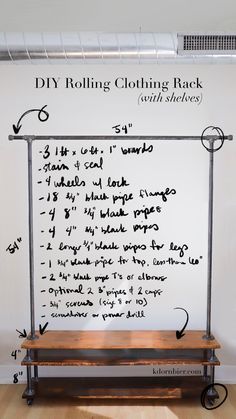 DIY Rolling Clothing Rack
(with shelves)
54"
- 3 1ft x 6ft x 1" boards
- stain & seal
- 4 wheels w/ lock
- 18 3/4" black pipe flanges
- 4 8" 3/4" black pipes
- 4 4" 3/4" black pipes
- 2 longer 3/4" black pipes for legs
- 1 3/4" black pipe for top, less than 60"
- 2 3/4" black pipe T's or elbows
- optional 2 3" pipes & 2 caps
- 3/4" screws (size 8 or 10)
- screwdriver or power drill
54"
4"
8"
kdornbier.com